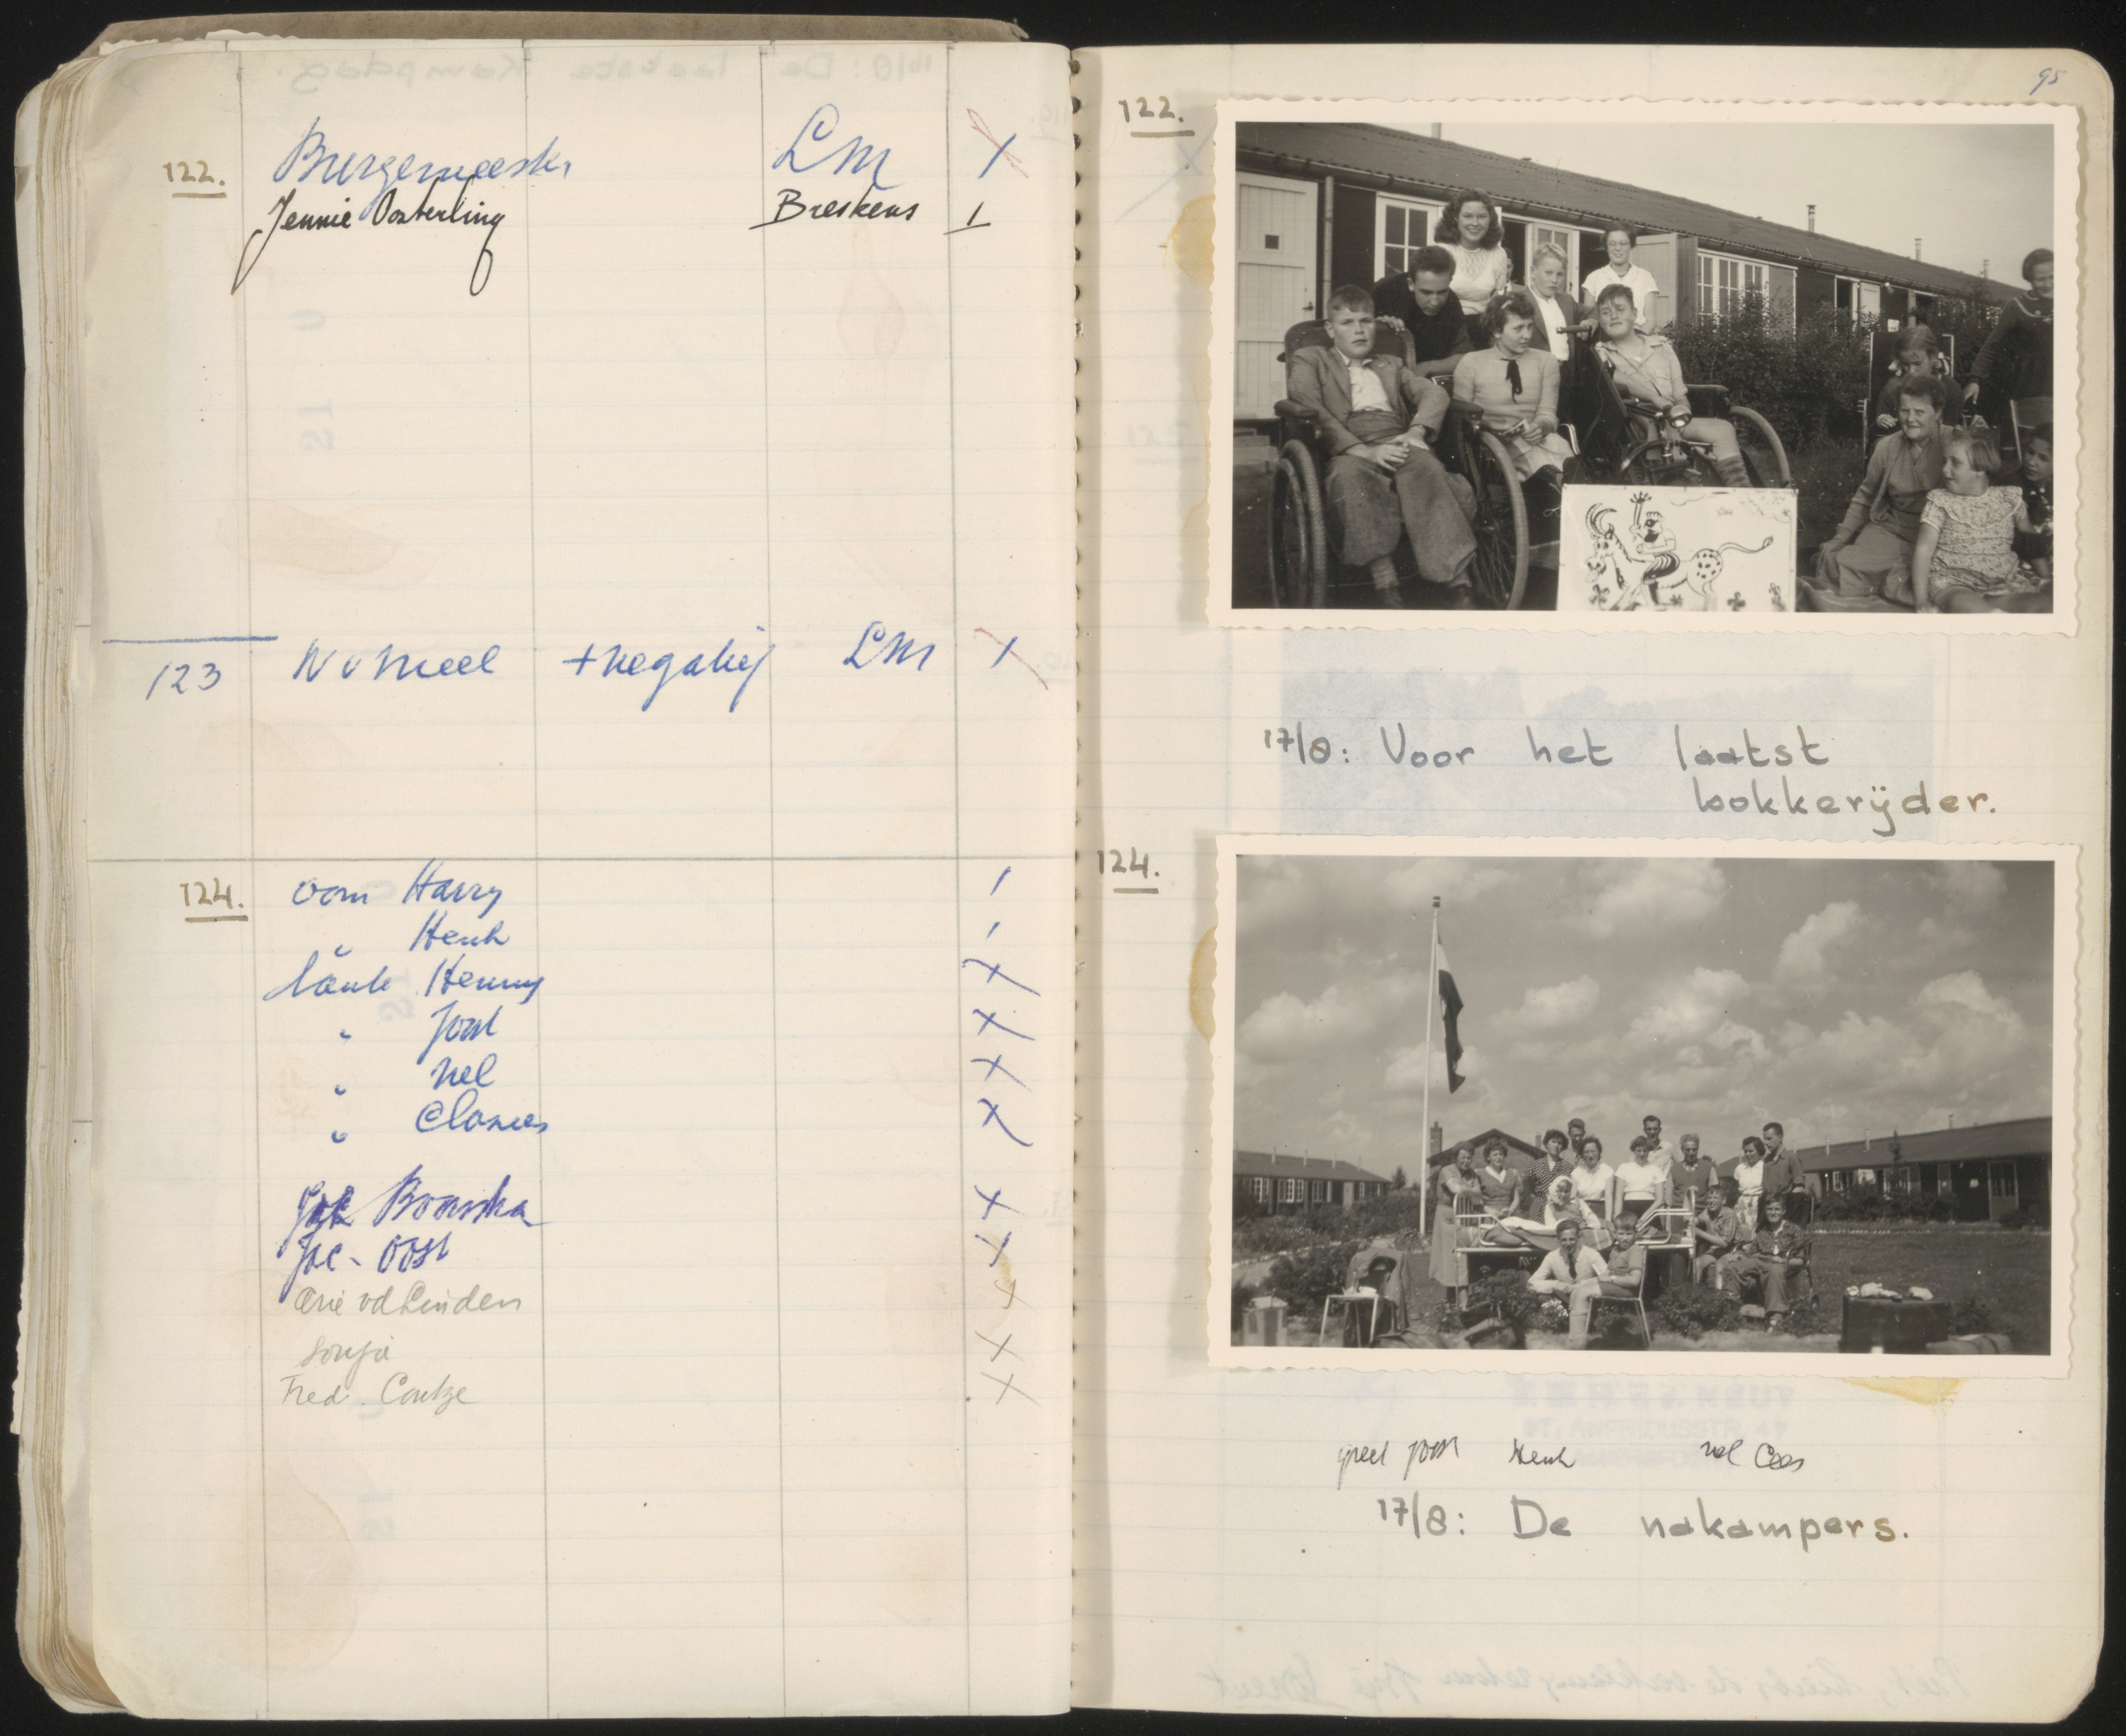 122. Burgemeester LM 1
Jennie Oosterling Breskens 1
123 W v Meel + negatief LM 1
124. oom Harry 1
" Henk 1
tante Henny X
" Joost X
" Nel X
" X
X
Joe - Oost X
Arie vd Linden X
Sonja X
Fred Coutze X
95
122.
17/8: Voor het laatst
bokkerijder.
124.
greet joost Henk nel Cees
17/8: De nakampers.